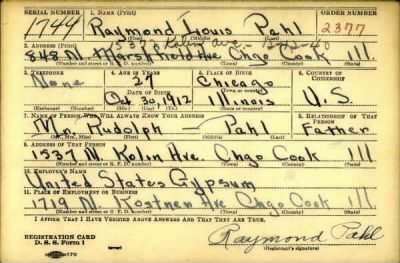 SERIAL NUMBER 1. NAME (Print) ORDER NUMBER
1744 Raymond Louis Pahl 2377
2. ADDRESS (Print) 1537 N. Kolin Ave.
848 N. Ave Chgo Cook Ill.
(Number and street or R. F. D. number) (Town) (County) (State)
3. TELEPHONE 4. AGE IN YEARS 5. PLACE OF BIRTH 6. COUNTRY OF CITIZENSHIP
None 27 Chicago
DATE OF BIRTH
Oct 30, 1912 Illinois U.S.
(Exchange) (Number) (Mo.) (Day) (Yr.) (State or country)
7. NAME OF PERSON WHO WILL ALWAYS KNOW YOUR ADDRESS 8. RELATIONSHIP OF THAT PERSON
Mr. Rudolph — Pahl Father
(Mr., Mrs., Miss) (First) (Middle) (Last)
9. ADDRESS OF THAT PERSON
1537 N. Kolin Ave. Chgo Cook Ill
(Number and street or R. F. D. number) (Town) (County) (State)
10. EMPLOYER'S NAME
United States Gypsum
11. PLACE OF EMPLOYMENT OR BUSINESS
1719 N. Kostner Ave Chgo Cook Ill
(Number and street or R. F. D. number) (Town) (County) (State)
I AFFIRM THAT I HAVE VERIFIED ABOVE ANSWERS AND THAT THEY ARE TRUE.
REGISTRATION CARD
D. S. S. Form 1
Raymond Pahl
(Registrant's signature)